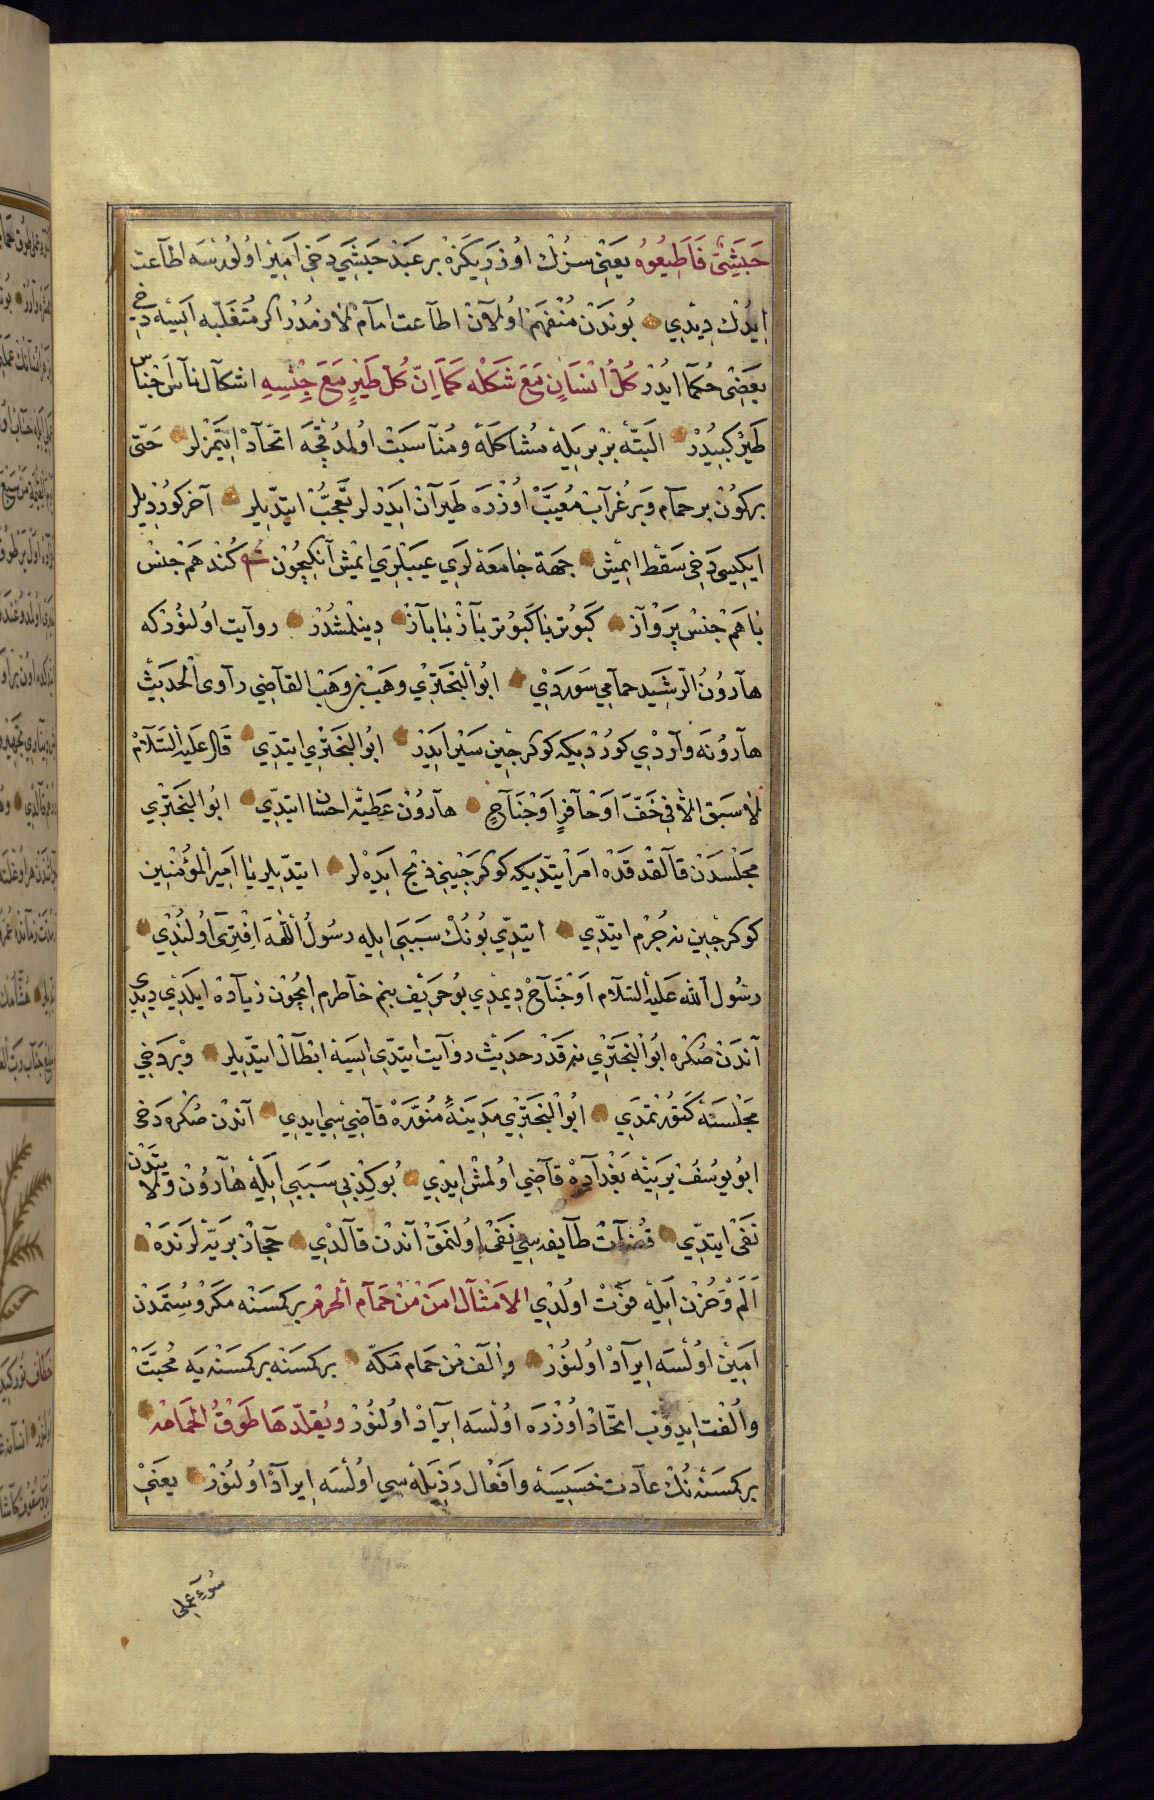 حَبَشِيٌّ فَاَطِيعُوهُ يعَنِى سزُك اُوزرِيكَزْه بر عَبدْ حَبشَي دَخِي اَمِيرْ اوُلورْسَه اطآعت
ايدُنْك دِيْدِي بُوندَن مُنْفهَم اوُلآن اطآعت امآم لاٰزمدُر اكر مُتغَلّبه اَيسَه دخى
بعَضِى حُكمَآ ايدُرْ كُلُّ انْسَانٍ مَعَ شَكْلِه كَمَا اِنّ كُلّ طَيْرٍ مَعَ جِنْسِهِ اشكآل نآس اجْناس
طَيْر كبِيدُرْ البَتّه بزْ برِيلِه مُشاكلَه ومُنآسَبَتْ اوُلمَدُقچَه اتحّآدْ ايتَمزْلر حَتّى
بركُونْ بر حمآم وبَرْ غُرآب مُعيَّبْ اوُزْرَه طَيَرآنْ ايدَرْ لر تعَجّبْ ايتدّيلر آخر كورْدِيلر
ايكِيسِي دَخِي سَقَط ايمِشْ جهَة جامَعه لَرِي عيَبلَرِي ايمْش آنكِيچُونْ كُندْ هَمْ جنْس
باهَمْ جنْس پَرْوآزْ كبَوُتر باكبَوُتر بآزْ بابآزْ دِينلمشدُرْ روآيت اوُلنُورْكه
هآرُونُ الرّشِيَد حمآمي سَوردِي ابُو البْخَتِري وهَبْ بن وهَبْ القآضِي رآوى الْحدَيثْ
هآرُونَه وآردْي كورُدْيكه كوكرجِين سَيْر ايَدِرْ ابُو البْختَرْي ايتدِّي قَالَ عَليَه السَّلآمْ
لاٰسَبَق الاّٰ فِى خُفّ اَوْ حآفرٍ اَوْ جنَآحٍ هآرُونْ عَطيّه احسٰان ايتدِّي ابُو البْخَتِري
مجَلسْدَن قآلقْدقدَه امَر ايتدّيكه كوكرجَيِنى ذبْح ايَدَه‌لر ايتدّيلر يا امَيِر الْمؤُمْنِيِن
كوكرجيِن نه جُرْم ايتدِّي ايتدّي بُونُكْ سَبَبَي ايله رسُولُ اللّٰه افْترِآ اوُلنُدي
رسُولُ اللّه عَليَه السّلآم اَوْ جَنآحْ دِيمَدِي بُو حرَيف بنِم خآطرم ايچُونْ زيآدَه ايلَدِي ديدي
آندَنْ صُكرَه ابُو البْختَرْي نه قَدرْ حدَيثْ روآيت ايتدّي ايسَه ابْطآلْ ايتدّيلر وبَردَخِي
مجَلْسَنَه كتورْتمَدي ابُو البْختَرْي مدَينَهٔ مُنوّرَه قآضِي سِي ايدِي آندْن صُكرَه دَخى
ابُو يوُسُفْ يرَينَه بغَدْآدَه قآضِي اوُلمشْ ايْدِي بُو كِذبِى سَبَبَي ايلَه هآرُونْ ولاٰيتدَنْ
نَفَىْ ايتدِّي قُضآت طآيفه‌سِي نَفَى اوُلنمقْ آندن قآلدِي حجآزْ برَيّه‌لرَندَه
اَلَم وَحُزْن ايلَه فوْت اوُلدِي الاَمْثآل امَن منْ حَمآم الْحرَم بركمسَنَه مَكرْ وسِتمَدن
امَيِنْ اوُلسَه ايرآدْ اوُلنُورْ والَف من حمام مَكّه بركمسَنه بركمسَنَه يَه محبّتْ
واُلْفت ايدوُب اتحّادْ اوُزْرَه اوُلسَه ايرآدْ اوُلنُورْ ويُقلّدهَا طَوْقُ الحَمامَه
بركمسَنه‌نُكْ عآدت خَسيسَه وافَعْال رَذِيلَه سِي اوُلسَه ايرآدْ اوُلنُورْ يعَنِىْ
سُوء عملى